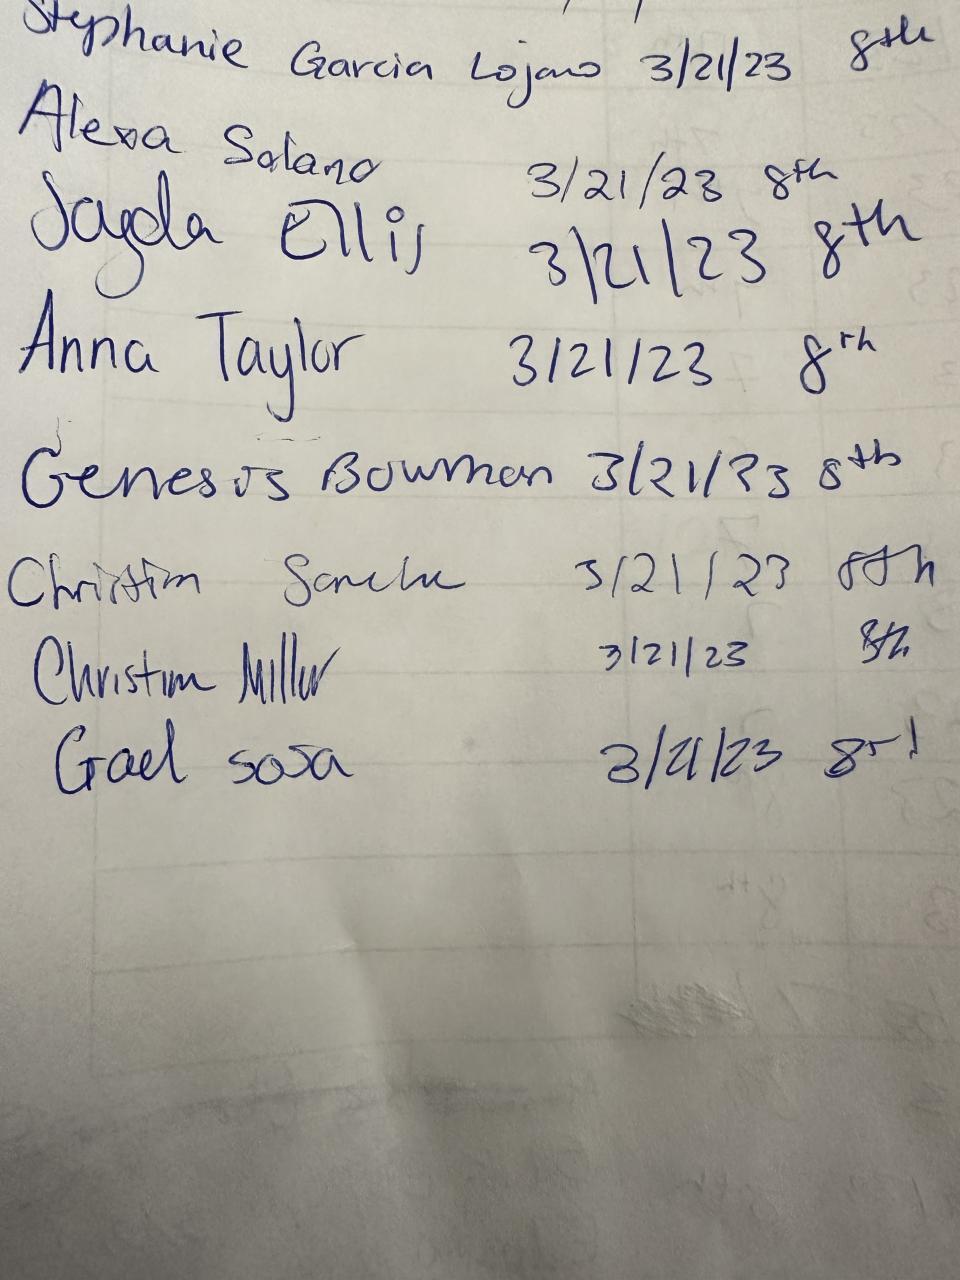 Stephanie Garcia Lojano 3/21/23 8th
Alexa Solano 3/21/23 8th
Jayda Ellis 3/21/23 8th
Anna Taylor 3/21/23 8th
Genesis Bowman 3/21/23 8th
Christian 3/21/23 8th
Christian Miller 3/21/23 8th
Gael sosa 3/21/23